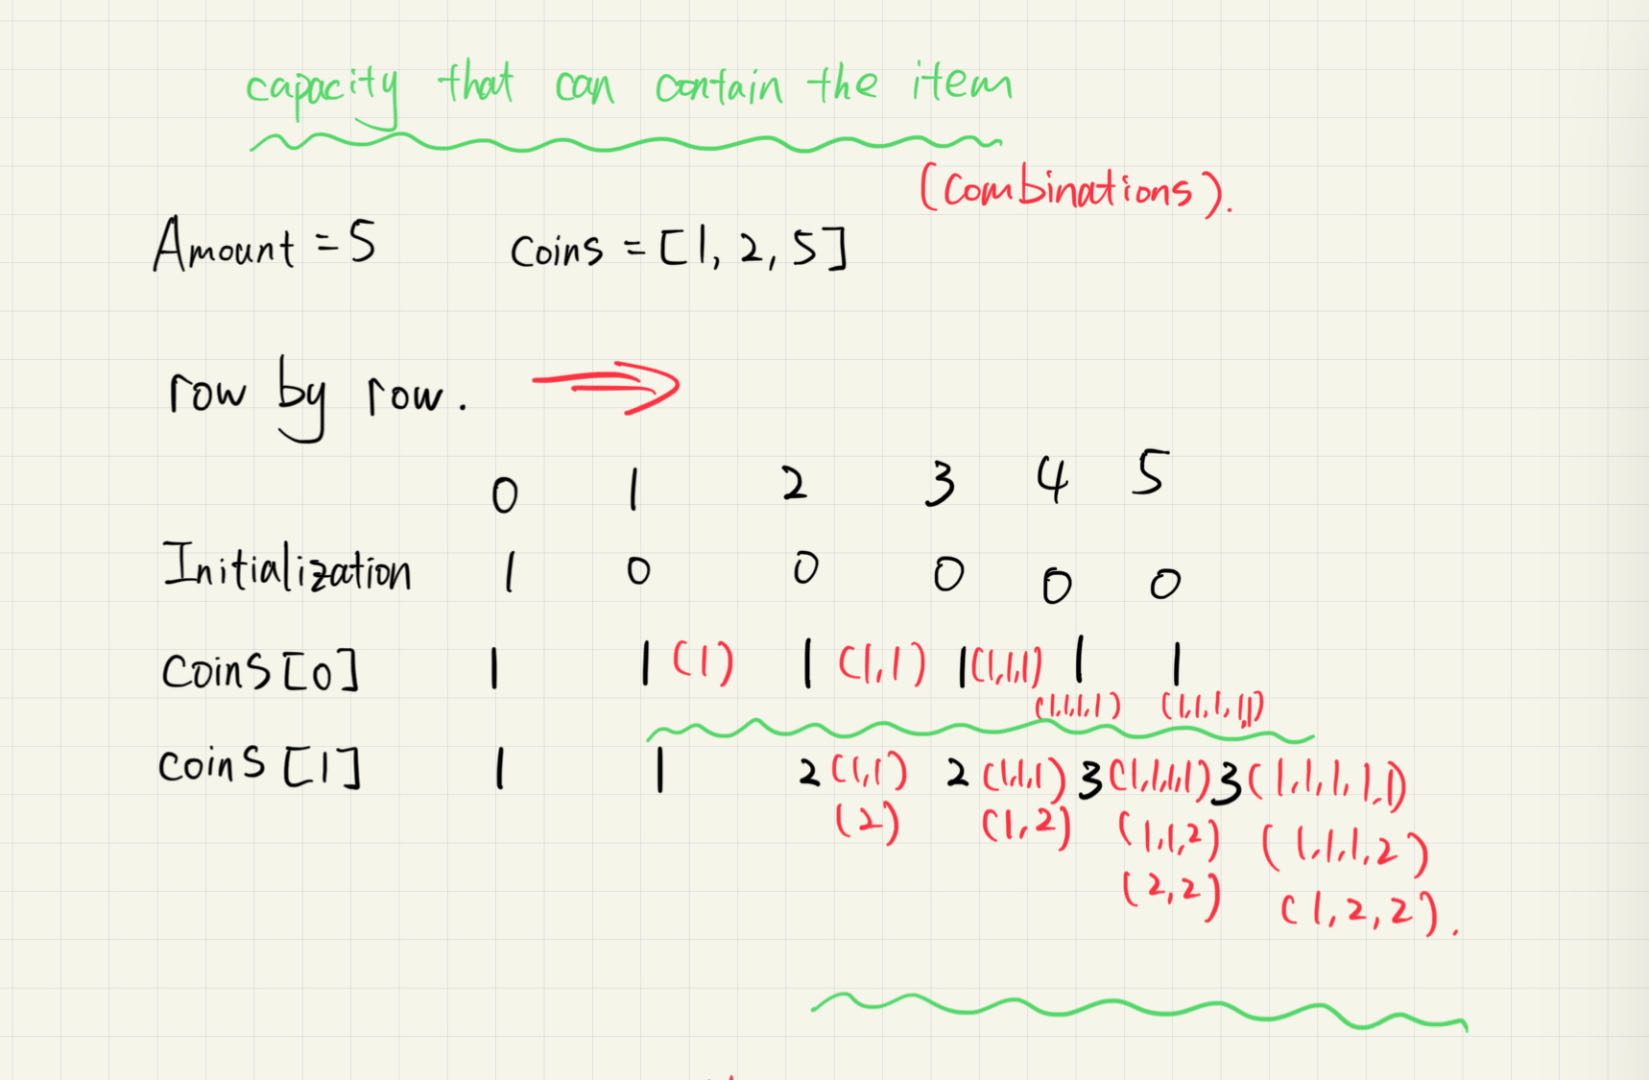 capacity that can contain the item
(Combinations).
Amount = 5 Coins = [1, 2, 5]
row by row.
0 1 2 3 4 5
Initialization 1 0 0 0 0 0
Coins[0] 1 1 (1) 1 (1,1) 1 (1,1,1) 1 1
(1,1,1,1) (1,1,1,1,1)
coins [1] 1 1 2 (1,1) 2 (1,1,1) 3 (1,1,1,1) 3 (1,1,1,1,1)
(2) (1,2) (1,1,2) (1,1,1,2)
(2,2) (1,2,2).